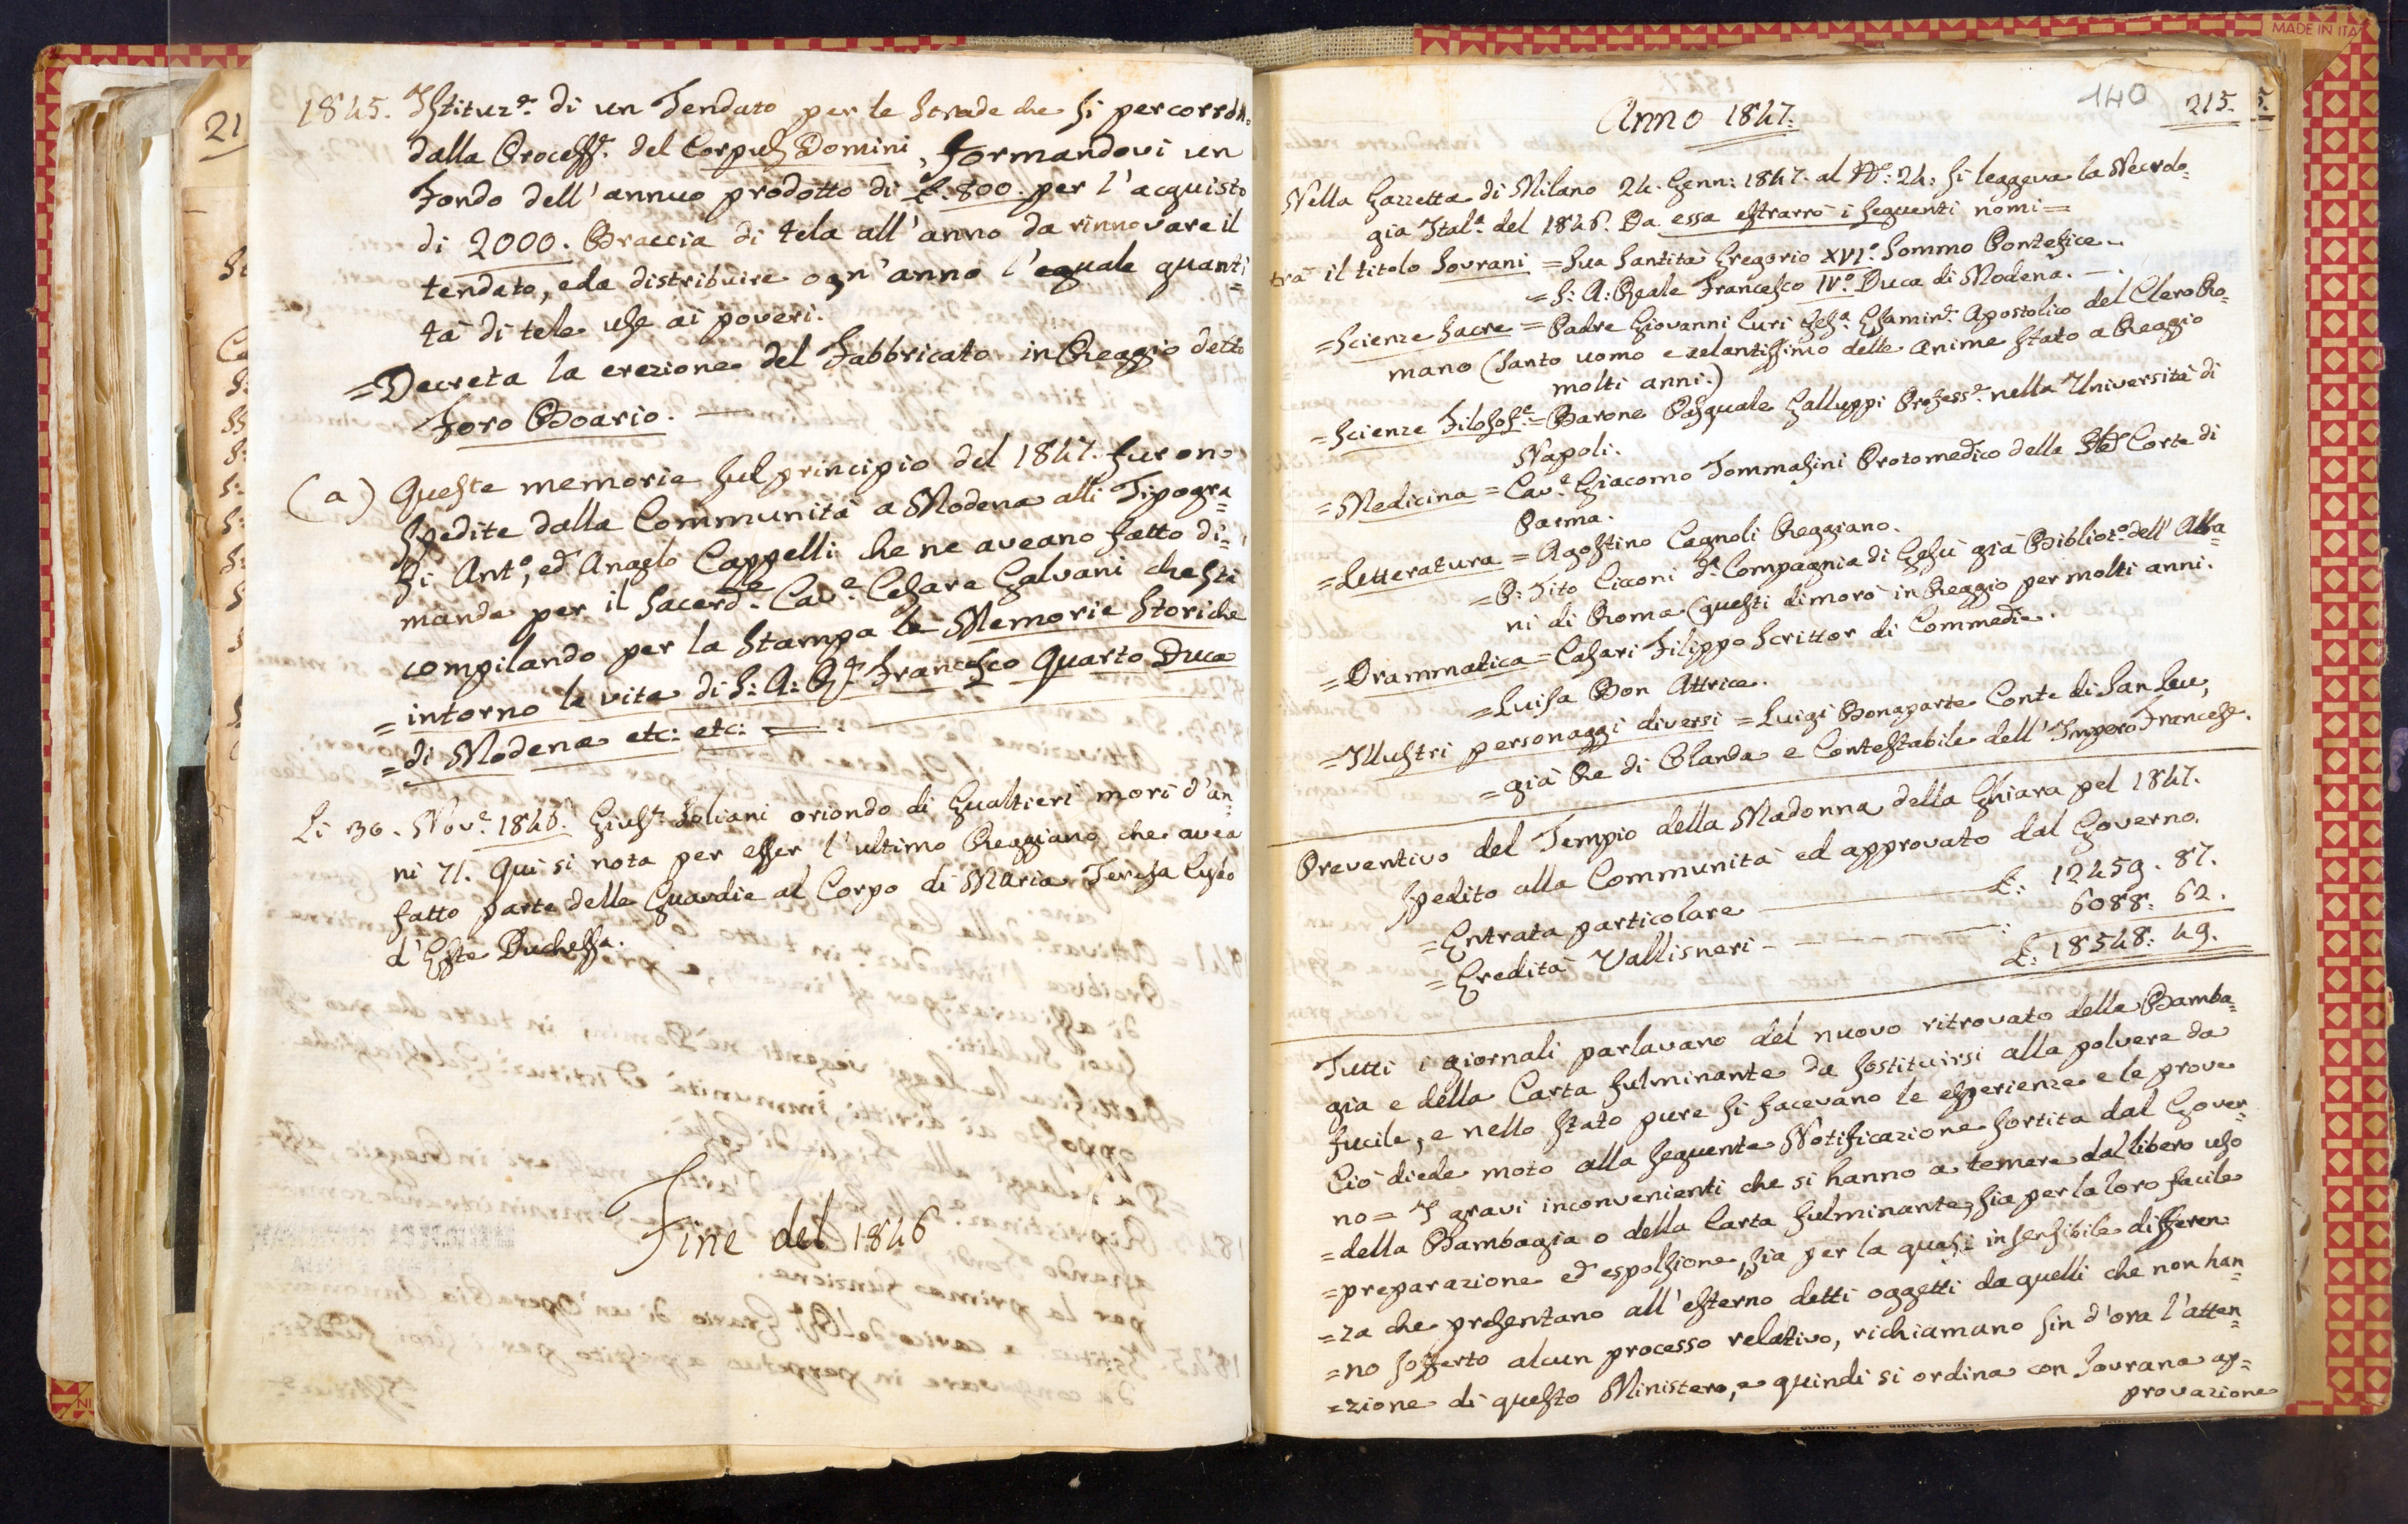 1845. Istituz.e di un Tendato per le Strade che si percorron.
dalla Process.e del Corpus Domini, formandovi un
Fondo dell'annuo prodotto di £. 800. per l'acquisto
di 2000. Braccia di tela all'anno da rinnovare il
tendato, e da distribuire ogn'anno l'eguale quanti=
tà di tele use ai poveri.
=Decreta la erezione del Fabbricato in Reggio detto
Foro Boario. —
(a) Queste memorie sul principio del 1847. furono
spedite dalla Communità a Modena alli Tipogra=
fi Ant.o, ed Angelo Cappelli che ne aveano fatto di=
manda per il Sacerd.e Cav.e Cesare Galvani che sti
compilando per la Stampa le Memorie Storiche
= intorno la vita di S: A: R.le Francesco Quarto Duca
= di Modena etc: etc: —.
Li 30. Nov.e 1846. Gius.e Soliani oriondo di Gualtieri morì d'an=
ni 71. Qui si nota per esser l'ultimo Reggiano che avea
fatto parte delle Guardie al Corpo di Maria Teresa Cybo
d'Este Duchessa.
Fine del 1846
140
215.
5.
21
MADE IN ITA
Anno 1847.
Nella Gazzetta di Milano 24. Genn: 1847. al N.o: 24: si leggeva la Necrolo=
gia Ital.a del 1846. Da essa estrarrò i seguenti nomi=
trà il titolo Sovrani = Sua Santità Gregorio XVI.o Sommo Pontefice..
= S: A: Reale Francesco IV.o Duca di Modena. —.
=Scienze Sacre = Padre Giovanni Curi Ges.a Esamin.e Apostolico del Clero Ro=
mano (Santo uomo e zelantissimo delle anime stato a Reggio
molti anni.)
=Scienze Filosof.e = Barone Pasquale Galluppi Profess.e nella Università di
Napoli.
=Medicina = Cav.e Giacomo Tommasini Protomedico della Corte di
Parma.
=Letteratura = Agostino Cagnoli Reggiano.
=P: Tito Cicconi d.a Compagnia di Gesù già Bibliot.o dell'Alba=
ni di Roma (questi dimorò in Reggio per molti anni.
=Drammatica = Casari Filippo Scrittor di Commedie.
=Luisa Bon Attrice.
=Illustri personaggi diversi = Luigi Bonaparte Conte di San Leu,
=già Re di Olanda e Contestabile dell'Impero Francese.
Preventivo del Tempio della Madonna della Ghiara pel 1847.
spedito alla Communità ed approvato dal Governo.
=Entrata particolare — £: 12459. 87.
=Eredità Vallisneri - - - - : 6088: 62.
£: 18548: 49.
Tutti i giornali parlavano del nuovo ritrovato della Bamba=
gia e della Carta fulminante da sostituirsi alla polvere da
fucile, e nello stato pure si facevano le esperienze e le prove
Ciò diede moto alla seguente Notificazione sortita dal Gover=
no = I gravi inconvenienti che si hanno a temere dal libero uso
=della Bambagia o della Carta fulminante, sia per la loro facile
=preparazione ed espolsione, sia per la quasi insensibile differen
=za che presentano all'esterno detti oggetti da quelli che non han
=no sofferto alcun processo relativo, richiamano sin d'ora l'atten
=zione di questo Ministero, e quindi si ordina con Sovrana ap=
provazione